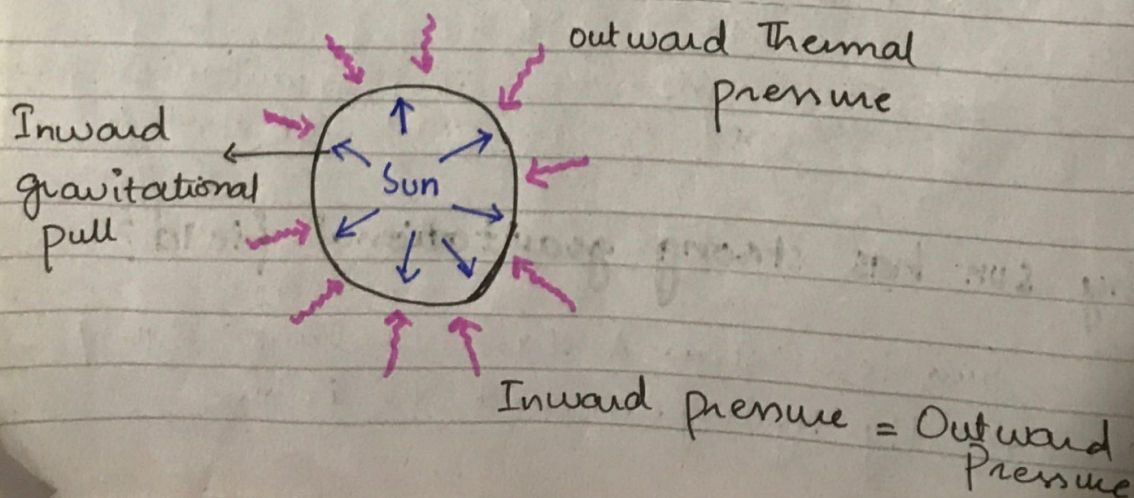 outward Thermal
pressure
Inward
gravitational
pull
Sun
Inward pressure = Outward
Pressure